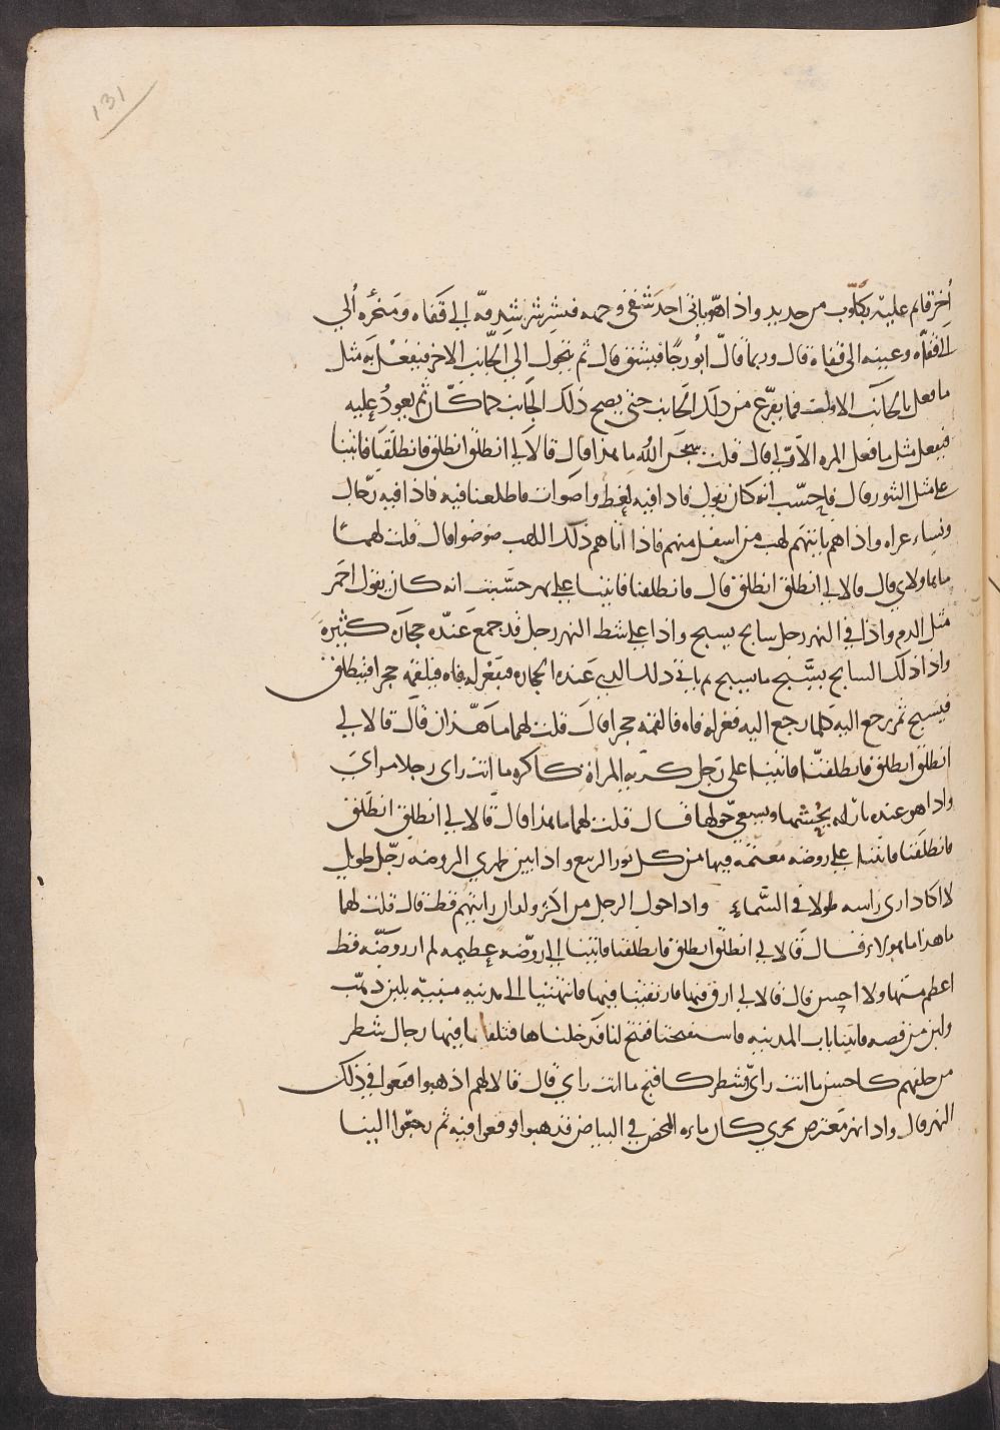 131
أخر قايم عليه بكلّوب من حديد واذا هو ياتي احد شقي وجهه فيشرشر شدقه الي قفاه ومنخره ألي
قفاه وعينه الى قفاه قال وربما قال ابو رجا فيشق قال ثم يتحول الي الجانب الاخر فيفعل به مثل
ما فعل بالجانب الاول فما يفرغ من ذلك الجانب حتي يصح ذلك الجانب كما كان ثم يعود عليه
فيفعل مثل ما فعل المره الاولي قال قلت سبحن الله ما هذا قال قالا لي انطلق انطلق فانطلقنا فاتينا
علي مثل التنور قال فاحسّب انه كان يقول فاذا فيه لغط واصوات فاطلعنا فيه فاذا فيه رجال
ونساء عراه واذا هم ياتيهم لهب من اسفل منهم فاذا اتاهم ذلك اللهب ضوضوا قال قلت لهما
ما هاولاي قال قالا لي انطلق انطلق قال فانطلقنا فاتينا علي نهر حسّبت انه كان يقول احمر
مثل الدم واذا في النهر رجل سابح يسبح واذا علي شط النهر رجل قد جمع عنده حجاره كثيرة
واذا ذلك السابح يسّبح ما يسبح ثم ياتي ذلك الذي عنده الحجاره فيفغر له فاه فيلقمه حجرا فينطلق
فيسبح ثم يرجع اليه كلما رجع اليه فغر له فاه فالقمه حجرا قال قلت لهما ما هذان قال قالا لي
انطلق انطلق فانطلقنا فاتينا علي رجل كريه المراة كاكره ما انت راى رجلا مراي
واذا هو عنده نار له يحُشها ويسعي حولها قال قلت لهما ما هذا قال قالا لي انطلق انطلق
فانطلقنا فاتينا علي روضه معتمه فيها من كل نور الربيع واذا بين ظهري الروضه رجل طويل
لا اكاد اري راسه طولا في السّماء واذا حول الرجل من اكثر ولدان رايتهم قط قال قلت لهما
ما هذا ما هولاء قال قالا لي انطلق انطلق فانطلقنا فاتينا الي روضه عظيمه لم ار روضه قط
اعظم منها ولا احسن قال قالا لي ارق فيها فارتقينا فيها فانتهينا الى مدينه مبنيه بلبن ذهب
ولبن من فضه فاتينا باب المدينه فاستفتحنا ففتح لنا فدخلناها فتلقانا فيها رجال شطر
من خلقهم كاحسن ما انت راي وشطر كاقبح ما انت راي قال قالا لهم اذهبوا فقعوا في ذلك
النهر قال واذا نهر معترض يجري كان ماءه المحض في البياض فذهبوا فوقعوا فيه ثم رجعوا الينا